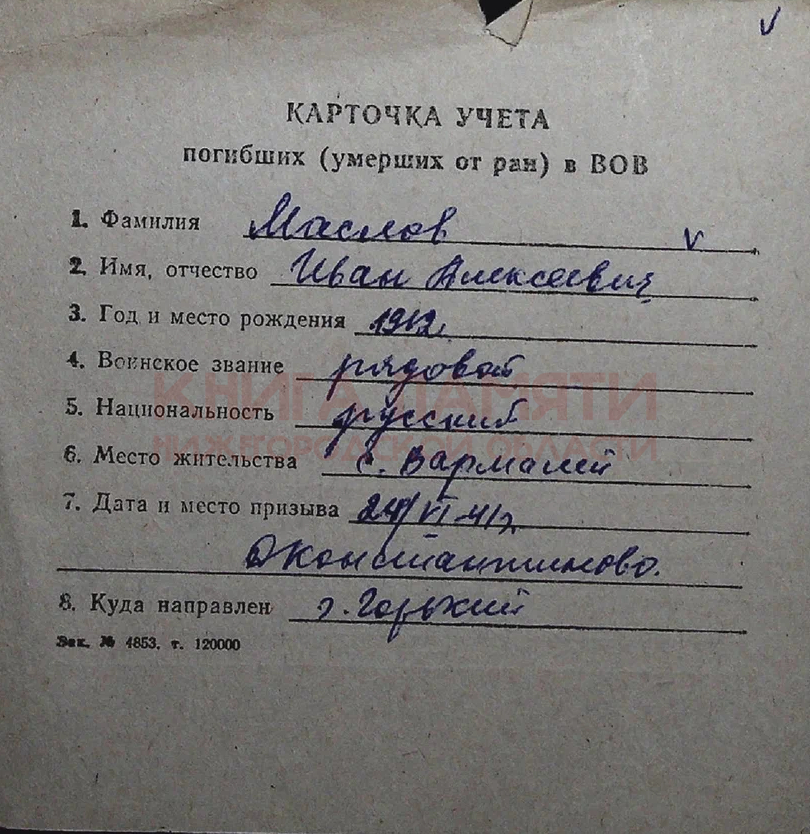 КАРТОЧКА УЧЕТА
погибших (умерших от ран) в ВОВ
1. Фамилия Маслов
2. Имя, отчество Иван Алексеевич
3. Год и место рождения 1912.
4. Воинское звание рядовой
5. Национальность русский
КНИГА ПАМЯТИ
НИЖЕГОРОДСКОЙ ОБЛАСТИ
6. Место жительства с. Вармалей
7. Дата и место призыва 24/VI-41г
Дконстантиново.
8. Куда направлен г. Горький
Зак. № 4853. т. 120000